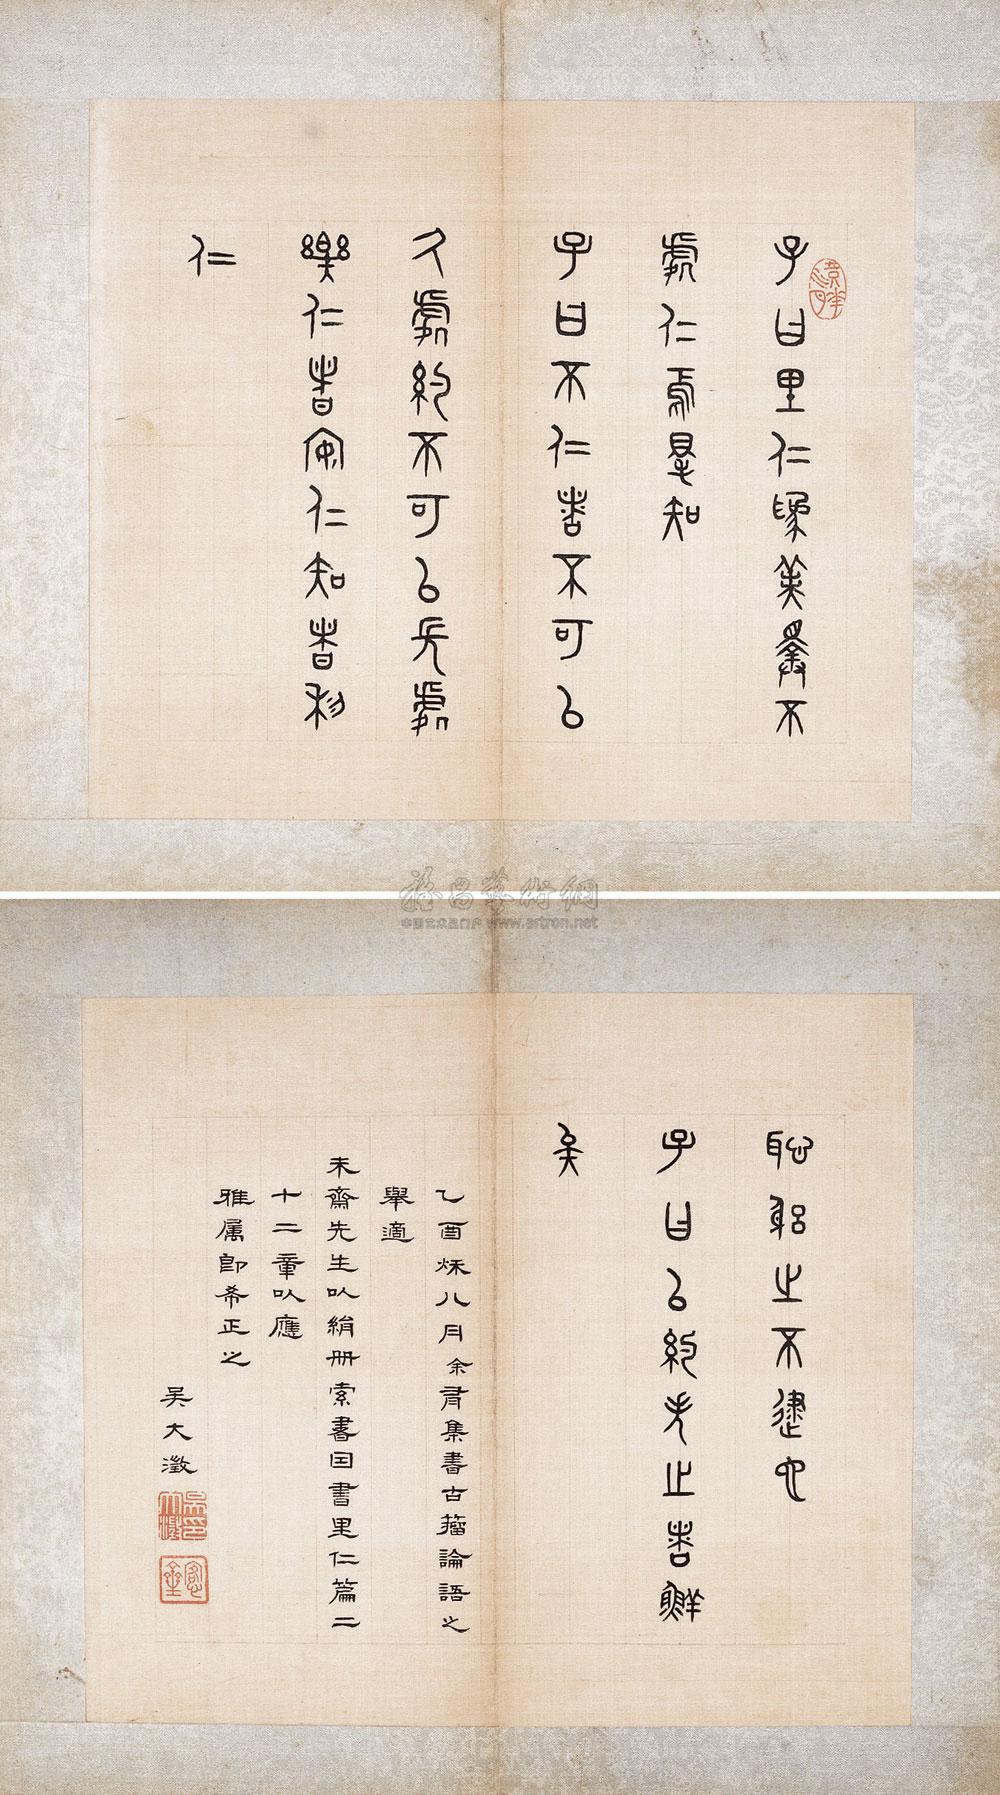 子曰里仁為美擇不
處仁焉得知
子曰不仁者不可以
久處約不可以長處
樂仁者安仁知者利
仁
恥躬之不逮也
子曰以約失之者鮮
矣
乙酉秌八月余有集書古籀論語之
舉適
未齋先生以絹册索書因書里仁篇二
十二章以應
雅属即希正之
吳大澂
www.artron.net